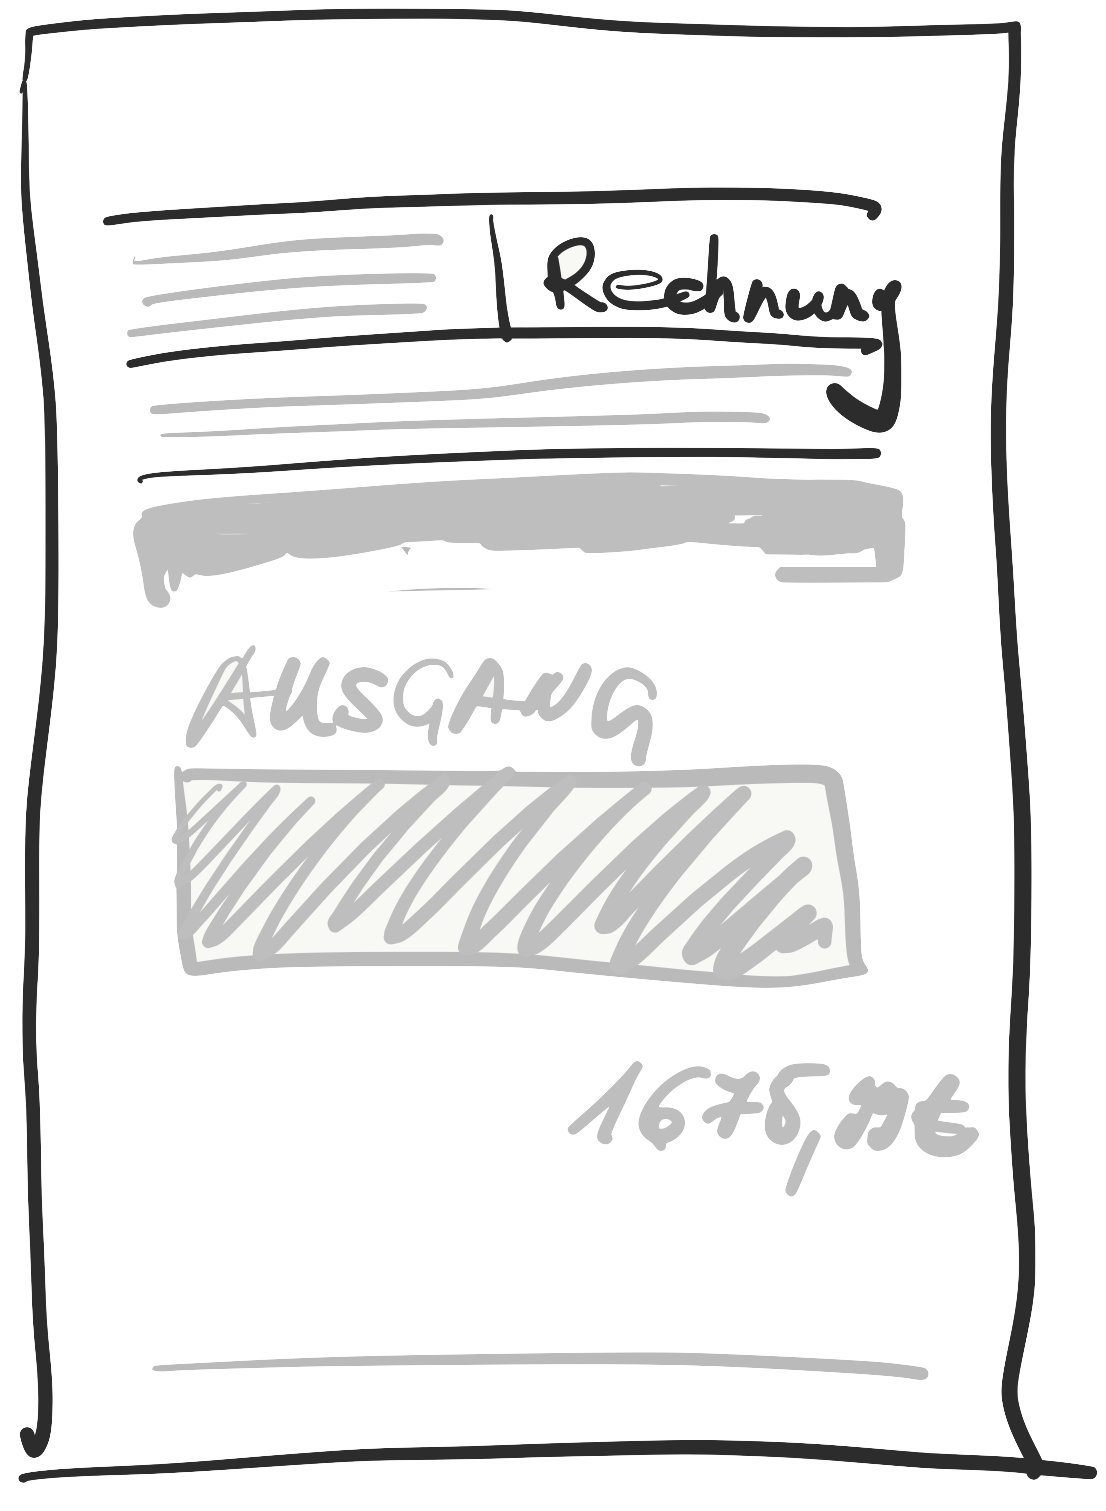 Rechnung
AUSGANG
1675,99€